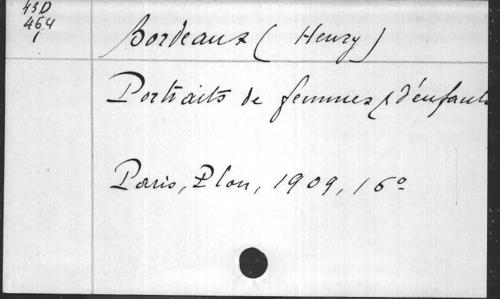 43D
464
1
Bordeaux (Henry)
Portraits de femmes & d'enfants
Paris, Plon, 1909, 16º